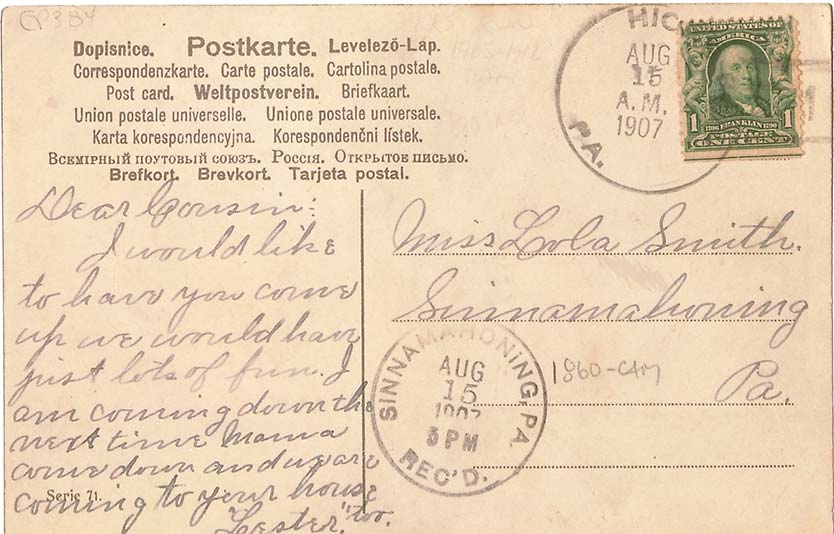 CP3 BY
Dopisnice. Postkarte. Levelezö-Lap.
Correspondenzkarte. Carte postale. Cartolina postale.
Post card. Weltpostverein. Briefkaart.
Union postale universelle. Unione postale universale.
Karta korespondencyjna. Korespondenčni lístek.
Всемірный поутовый союзъ. Россія. Открытое письмо.
Brefkort. Brevkort. Tarjeta postal.
AUG
15
A. M.
1907
PA.
UNITED STATES OF
AMERICA
1 1706 FRANKLIN 1790 1
POSTAGE
ONE CENT
Dear Cousin:
I would like
to have you come
up we would have
just lots of fun. I
am coming down the
next time Mama
come down and we are
coming to your house
"Lester." too.
Serie 71.
Miss Lola Smith.
Sinnamahoning
Pa.
SINNAMAHONING, PA.
AUG
15
1907
5 PM
REC'D.
1860-CAM